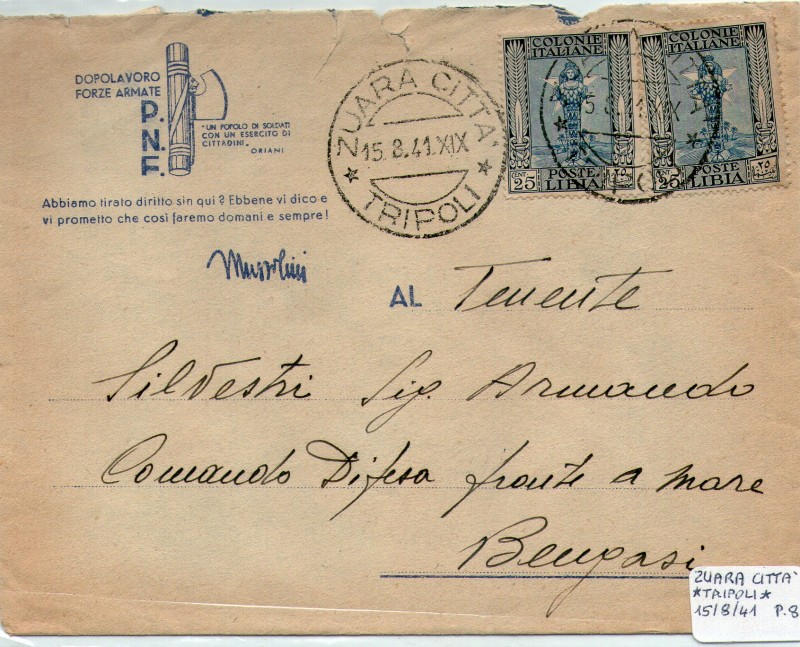 DOPOLAVORO
FORZE ARMATE
P.
N.
F.
"UN POPOLO DI SOLDATI
CON UN ESERCITO DI
CITTADINI„
ORIANI
Abbiamo tirato diritto sin qui? Ebbene vi dico e
vi prometto che così faremo domani e sempre!
Mussolini
ZUARA CITTA'
15.8.41.XIX
TRIPOLI
COLONIE
ITALIANE
POSTE
CENT 25 LIBIA ٢٥
COLONIE
ITALIANE
POSTE
25 LIBIA ٢٥
AL Tenente
Silvestri Sig. Armando
Comando Difesa fronte a mare
Bengasi
ZUARA CITTA'
*TRIPOLI*
15/8/41 P.8